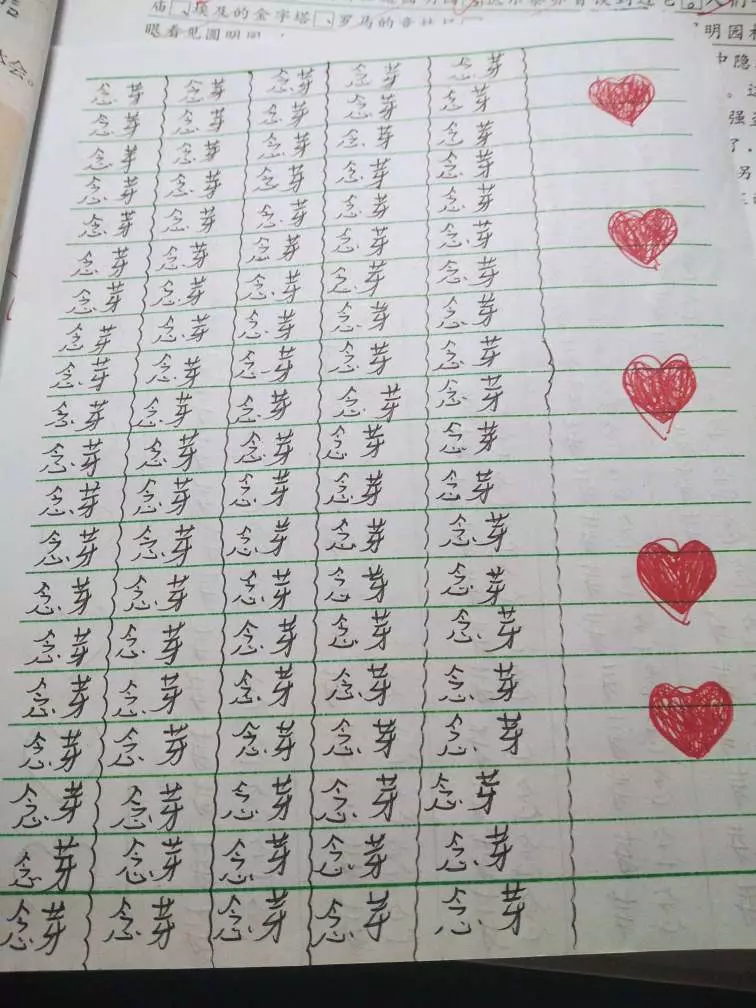 庙、埃及的金字塔、罗马的
眼看见圆明园
会。
明园
中隐
强
了，
另
念芽 念芽 念芽 念芽 念芽
念芽 念芽 念芽 念芽 念芽
念芽 念芽 念芽 念芽 念芽
念芽 念芽 念芽 念芽 念芽
念芽 念芽 念芽 念芽 念芽
念芽 念芽 念芽 念芽 念芽
念芽 念芽 念芽 念芽 念芽
念芽 念芽 念芽 念芽 念芽
念芽 念芽 念芽 念芽 念芽
念芽 念芽 念芽 念芽 念芽
念芽 念芽 念芽 念芽 念芽
念芽 念芽 念芽 念芽 念芽
念芽 念芽 念芽 念芽 念芽
念芽 念芽 念芽 念芽 念芽
念芽 念芽 念芽 念芽 念芽
念芽 念芽 念芽 念芽 念芽
念芽 念芽 念芽 念芽 念芽
念芽 念芽 念芽 念芽 念芽
念芽 念芽 念芽 念芽 念芽
念芽 念芽 念芽 念芽 念芽